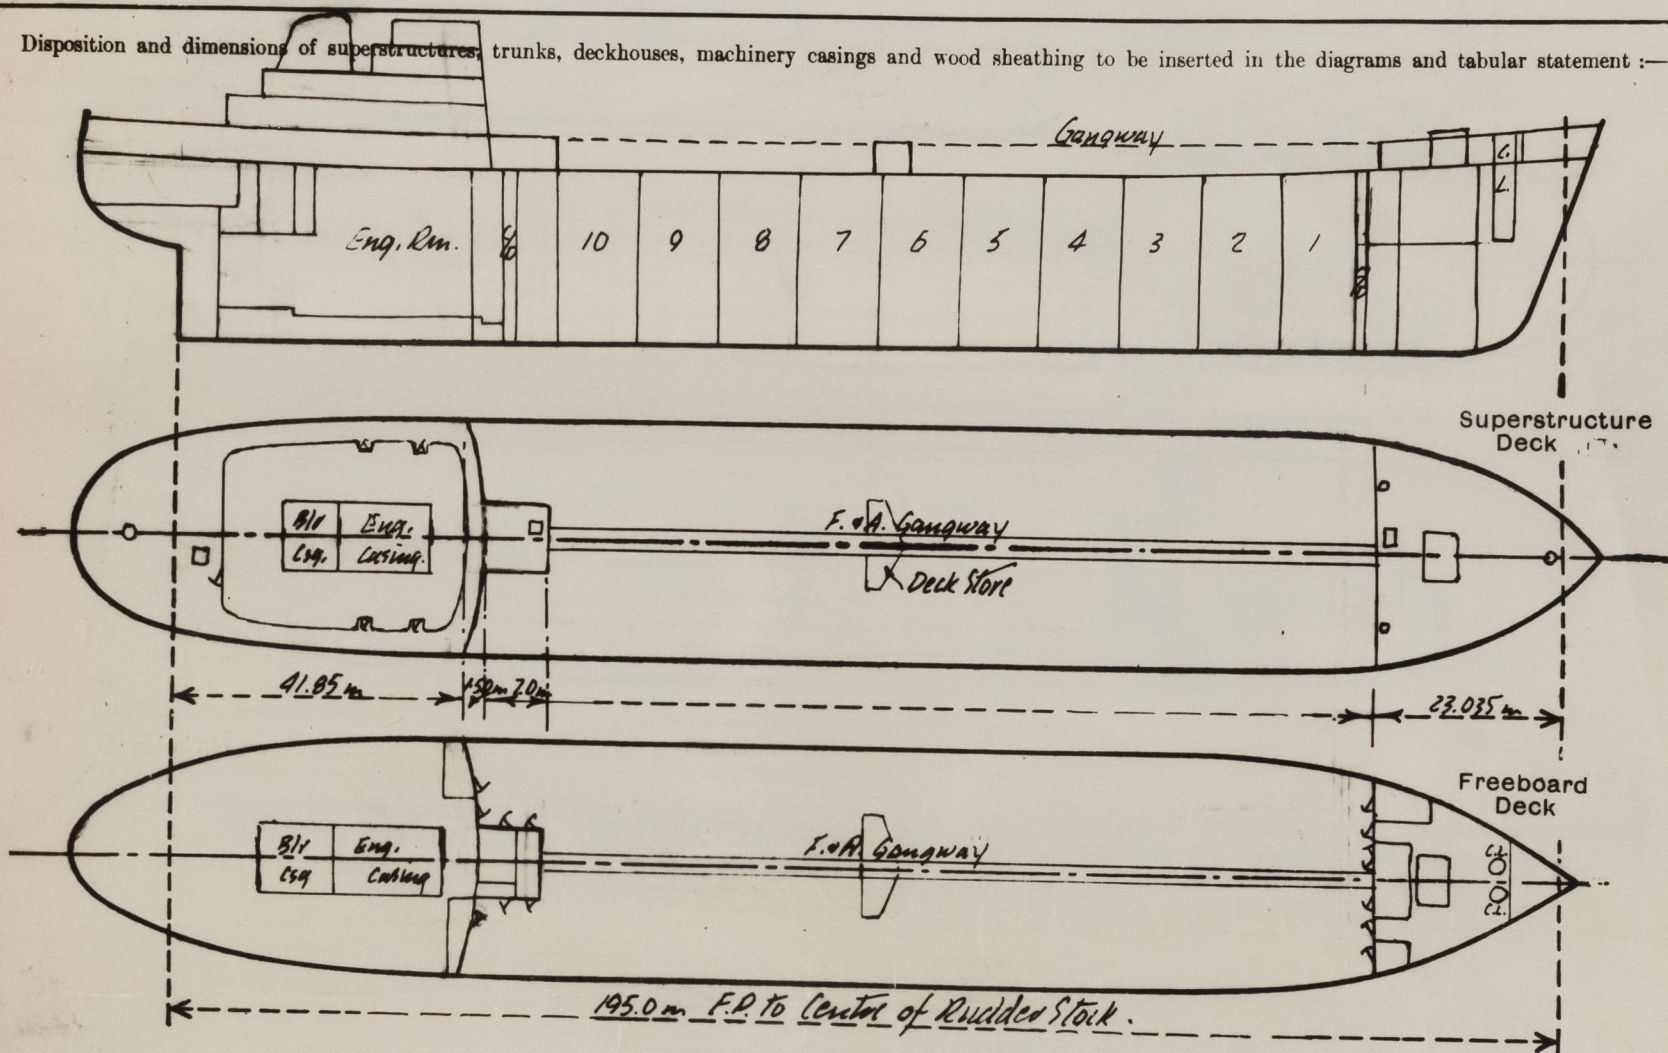 Disposition and dimensions of superstructures, trunks, deckhouses, machinery casings and wood sheathing to be inserted in the diagrams and tabular statement :—
Gangway
C.
L.
Eng. Rm.
10 9 8 7 6 5 4 3 2 1
Superstructure
Deck
F. & A. Gangway
Deck Store
Blr
Csg.
Eng.
Casing.
41.85 m
1.50m
7.0m
23.035 m
Freeboard
Deck
Blr
Csg
Eng.
Casing
F. & A. Gangway
C.L.
C.L.
195.0 m F.P. to Centre of Rudder Stock.